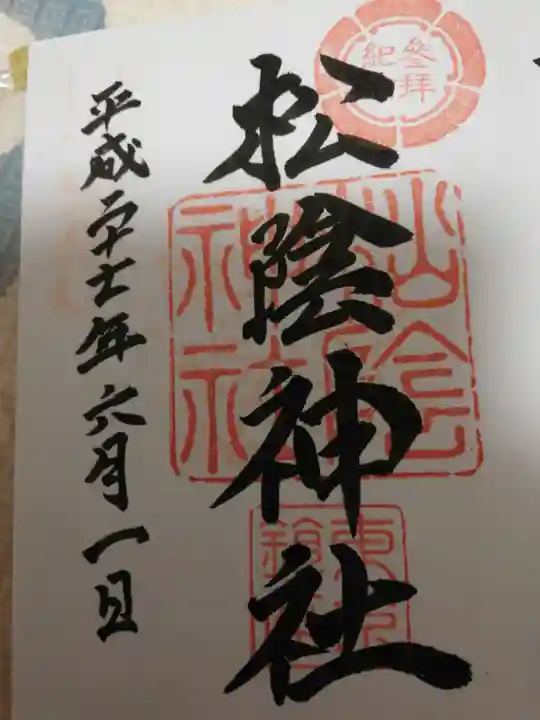 參拝
紀
松陰神社
松陰
神社
東京
鎮座
平成二十七年六月一日